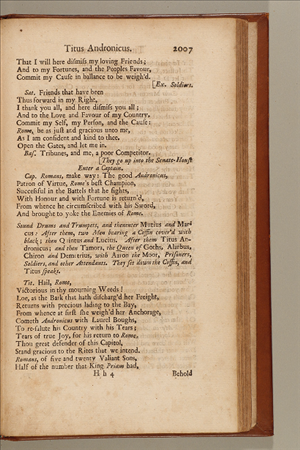 Titus Andronicus. 2007
That I will here dismiss my loving Friends;
And to my Fortunes, and the Peoples Favour,
Commit my Cause in ballance to be weigh'd.
[Ex. Soldiers.
Sat. Friends that have been
Thus forward in my Right,
I thank you all, and here dismiss you all;
And to the Love and Favour of my Country,
Commit my Self, my Person, and the Cause:
Rome, be as just and gracious unto me,
As I am confident and kind to thee.
Open the Gates, and let me in.
Bas. Tribunes, and me, a poor Competitor.
[They go up into the Senate-House
Enter a Captain.
Cap. Romans, make way: The good Andronicus,
Patron of Virtue, Rome's best Champion,
Successful in the Battels that he fights,
With Honour and with Fortune is return'd,
From whence he circumscribed with his Sword,
And brought to yoke the Enemies of Rome.
Sound Drums and Trumpets, and then enter Mutius and Mar-
cus: After them, two Men bearing a Coffin cover'd with
black; then Quintus and Lucius. After them Titus An-
dronicus; and then Tamora, the Queen of Goths, Alarbus,
Chiron and Demetrius, with Aaron the Moor, Prisoners,
Soldiers, and other Attendants. They set down the Coffin, and
Titus speaks.
Tit. Hail, Rome,
Victorious in thy mourning Weeds!
Loe, as the Bark that hath discharg'd her Freight,
Returns with precious lading to the Bay,
From whence at first she weigh'd her Anchorage,
Cometh Andronicus with Laurel Boughs,
To re-salute his Country with his Tears;
Tears of true Joy, for his return to Rome.
Thou great defender of this Capitol,
Stand gracious to the Rites that we intend.
Romans, of five and twenty Valiant Sons,
Half of the number that King Priam had,
H h 4 Behold